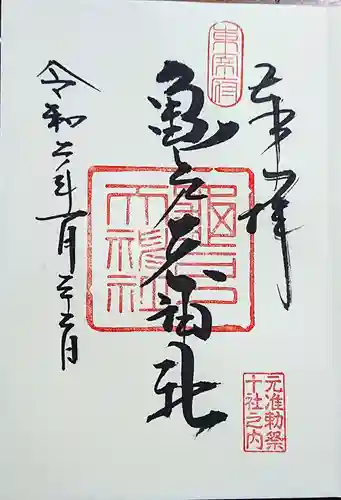 奉拝
東宰府
亀戸天神社
亀戸天神社
元准勅祭
十社之内
令和六年一月二十二日